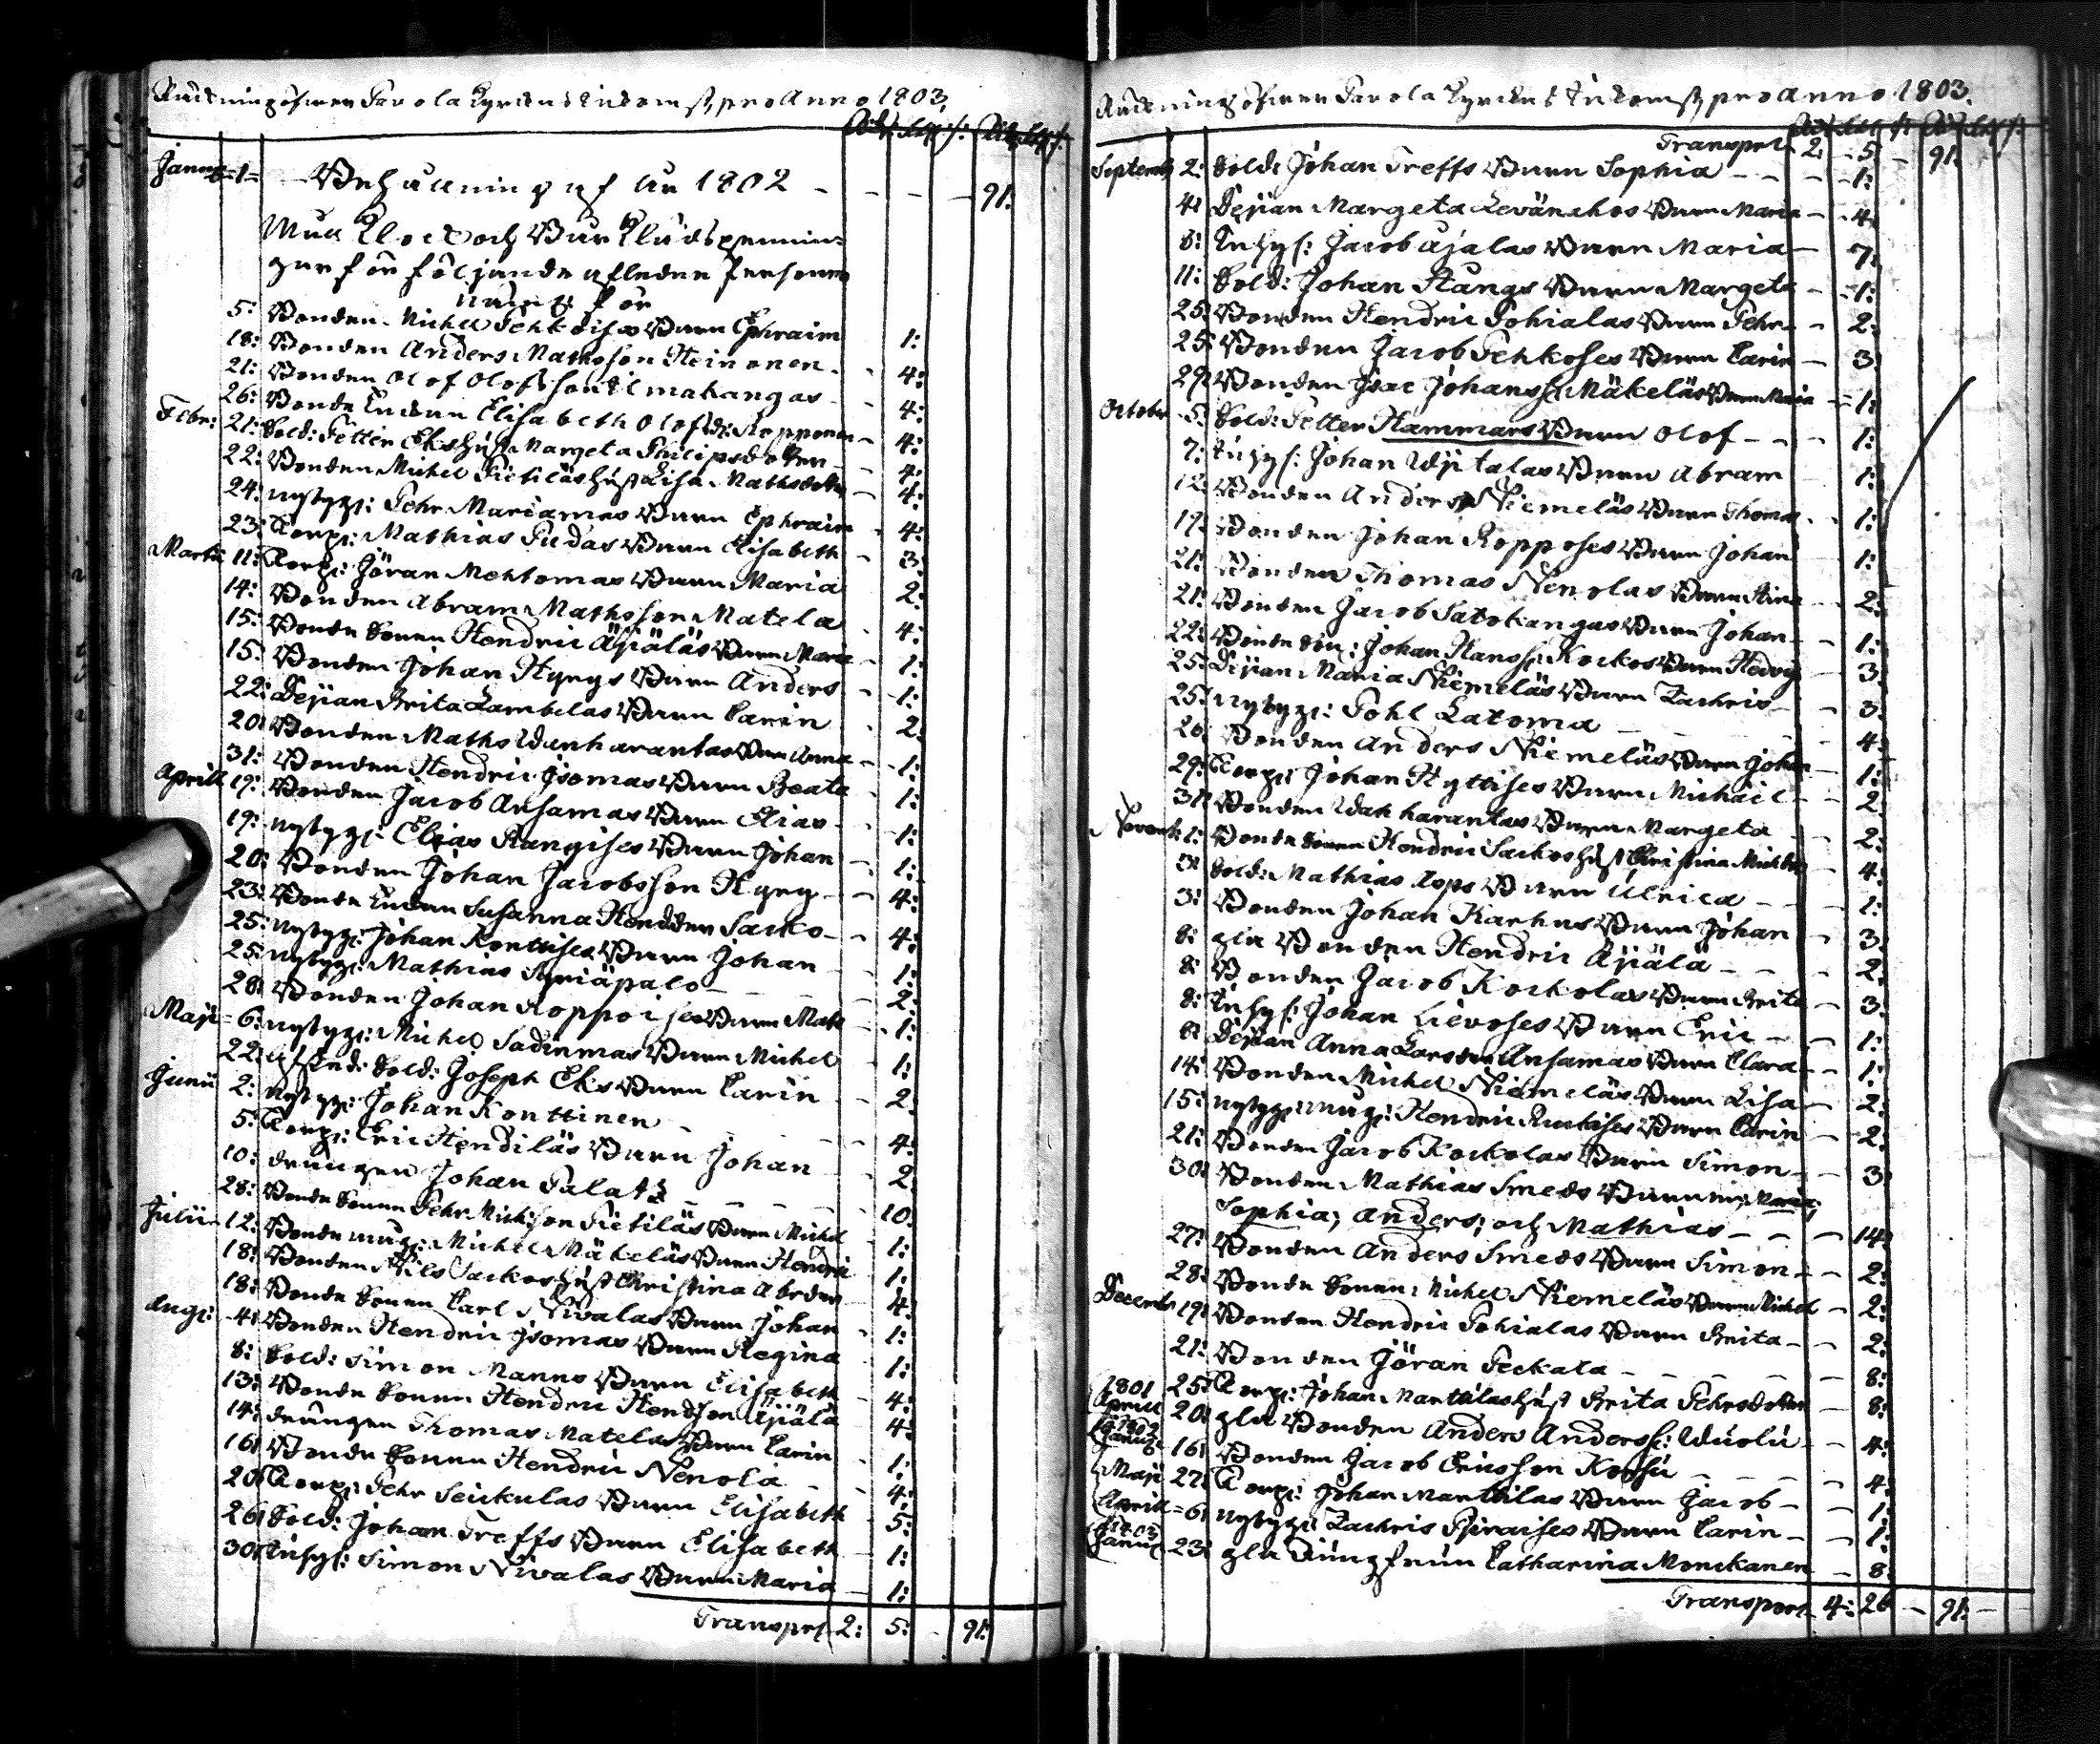 Räkning öfwer Pavola Kyrckas Inkomst, pro Anno 1803.
Januari 1 Behållning af År 1802 91:
Mull Klock och Bår Klädspennin-
gar för följande afledne Personer
näml: för
5: Bonden Michel Pehkoises Barn Ephraim 1:
18: Bonden Anders Mathsson Heinonen 4:
21: Bonden Olof Olofsson Ilmakangas 4:
26: Bonde Enkan Elisabeth Olofsdr: Ropponen 4:
Febr: 21: Sold: Petter Eks Hust Margeta Philipsdotter 4:
22: Bonden Michel Pietiläs Hust Lisa Mathsdotter 4:
24: nybygg: Pehr Mariamas Barn Ephraim 4:
23: Torp: Mathias Pudas Barn Elisabeth 3:
Martii 11: Torp: Jöran Mehtomas Barn Maria 2:
14: Bonden Abram Mathsson Matela 4:
15: Bonde Sonen Hendric Äijäläs Barn Maria 1:
15: Bonden Johan Hyrys Barn Anders 1:
22: Pejian Brita Lambelas Barn Carin 2:
20: Bonden Maths Wanharantas Barn Anna 1:
31: Bonden Hendric Isomas Barn Beata 1:
Aprill 19: Bonden Jacob Ansamas Barn Elias 1:
19: nybygg: Elias Kangises Barn Johan 1:
20: Bonden Johan Jacobsson Hyry 4:
23: Bonde Enkan Susanna Hendder Sarko 4:
25: nybygg: Johan Konttises Barn Johan 1:
25: nybygg: Mathias Syriäpalo 2:
28: Bonden Johan Roppoises Barn Math 1:
Maji 6: nybygg: Michel Sadinmas Barn Michel 1:
22: Afsked: Sold: Joseph Eks Barn Carin 2:
Junii 2: nybygg: Johan Konttinen 4:
5: Torp: Eric Hendiläs Barn Johan 2:
10: drängen Johan Palatz 10:
28: Bonde Sonen Pehr Michsson Pietiläs Barn Michel 1:
Julii 12: Bonde måg: Michel Mäkeläs Barn Hendric 1:
18: Bonden Nils Sarkos Hust Christina Abrder 4:
18: Bonde Sonen Carl Nivalas Barn Johan 1:
Aug: 4: Bonden Hendric Isomas Barn Regina 1:
8: Sold: Simon Manns Barn Elisabeth 4:
13: Bonde Sonen Hendric Hendsson Äijälä 4:
14: drängen Thomas Matelas Barn Carin 1:
16: Bonde Sonen Hendric Nenola 4:
20: Torp: Pehr Seickulas Barn Elisabeth 5:
26: Sold: Johan Treffs Barn Elisabeth 1:
30: Inhys: Simon Nivalas Barn Maria 1:
Transport 2: 5: 91:
Räkning öfwer Pavola Kyrckas Inkomst, pro Anno 1803.
Transport 2: 5 91:
Septemb 2: Sold: Johan Treffs Barn Sophia 1:
4: Pejian Margeta Levänchos Barn Maria 4:
8: Inhys: Jacob Ajalas Barn Maria 7:
11: Sold: Johan Stångs Barn Margeta 1:
25: Bonden Hendric Pohialas Barn Pehr 2:
25: Bonden Jacob Pehkoses Barn Carin 3:
29: Bonden Isac Johanss: Mäkeläs Barn Maria 1:
October 5: Sold: Petter Hammars Barn Olof 1:
7: Inhys: Johan Wijtalas Barn Abram 1:
12: Bonden Anders Niemeläs Barn Thomas 1:
19: Bonden Johan Ropposes Barn Johan 1:
21: Bonden Thomas Nenolas Barn Stina 2:
21: Bonden Jacob Satokangas Barn Johan 1:
22: Bonde Son: Johan Hanss: Korkos Barn Hedvig 3:
25: Pejian Maria Niemeläs Barn Zachris 3:
25: nybygg: Pohl Latoma 4:
26: Bonden Anders Niemeläs Barn Johan 1:
29: Torp: Johan Hyttises Barn Michäel 2:
31: Bonden Wanharantas Barn Margeta 2:
Novemb 1: Bonde Sonen Hendric Sarkos Hust Christina Michder 4:
3: Sold: Mathias Asps Barn Ulrica 1:
3: Bonden Johan Karhus Barn Johan 3:
8: gla Bonden Hendric Äijälä 2:
8: Bonden Jacob Korkolas Barn Brita 3:
8: Inhys: Johan Lievoses Barn Eric 1:
8: Pejian Anna Larsder Ansamas Barn Clara 1:
14: Bonden Michel Niemeläs Barn Lisa 2:
15: nybygg: måg: Hendric Ruckises Barn Carin 2:
21: Bonden Jacob Korkolas Barn Simon 3:
30: Bonden Mathias Smeds Barn n: Maria;
Sophia; Anders; och Mathias 14:
27: Bonden Anders Smeds Barn Simon 2:
28: Bonde Sonen Michel Niemeläs Barn Michel 2:
Decemb 19: Bonden Hendric Pohialas Barn Brita 2:
21: Bonden Jöran Peckala 8:
25: Torp: Johan Marttilas Hust Brita Pehrsdotter 8:
1801 Aprill 20: gla Bonden Anders Anderss: Wuolu 4:
1802 Januc 16: Bonden Jacob Ericsson Korsu 4:
Maji 27: Torp: Johan Marttilas Barn Jacob 1:
Aprill 6: nybygg: Zachris Piiraises Barn Carin 1:
1803 Januc 23: gla Jungfrun Catharina Monckanen 8:
Transport 4: 26 91: